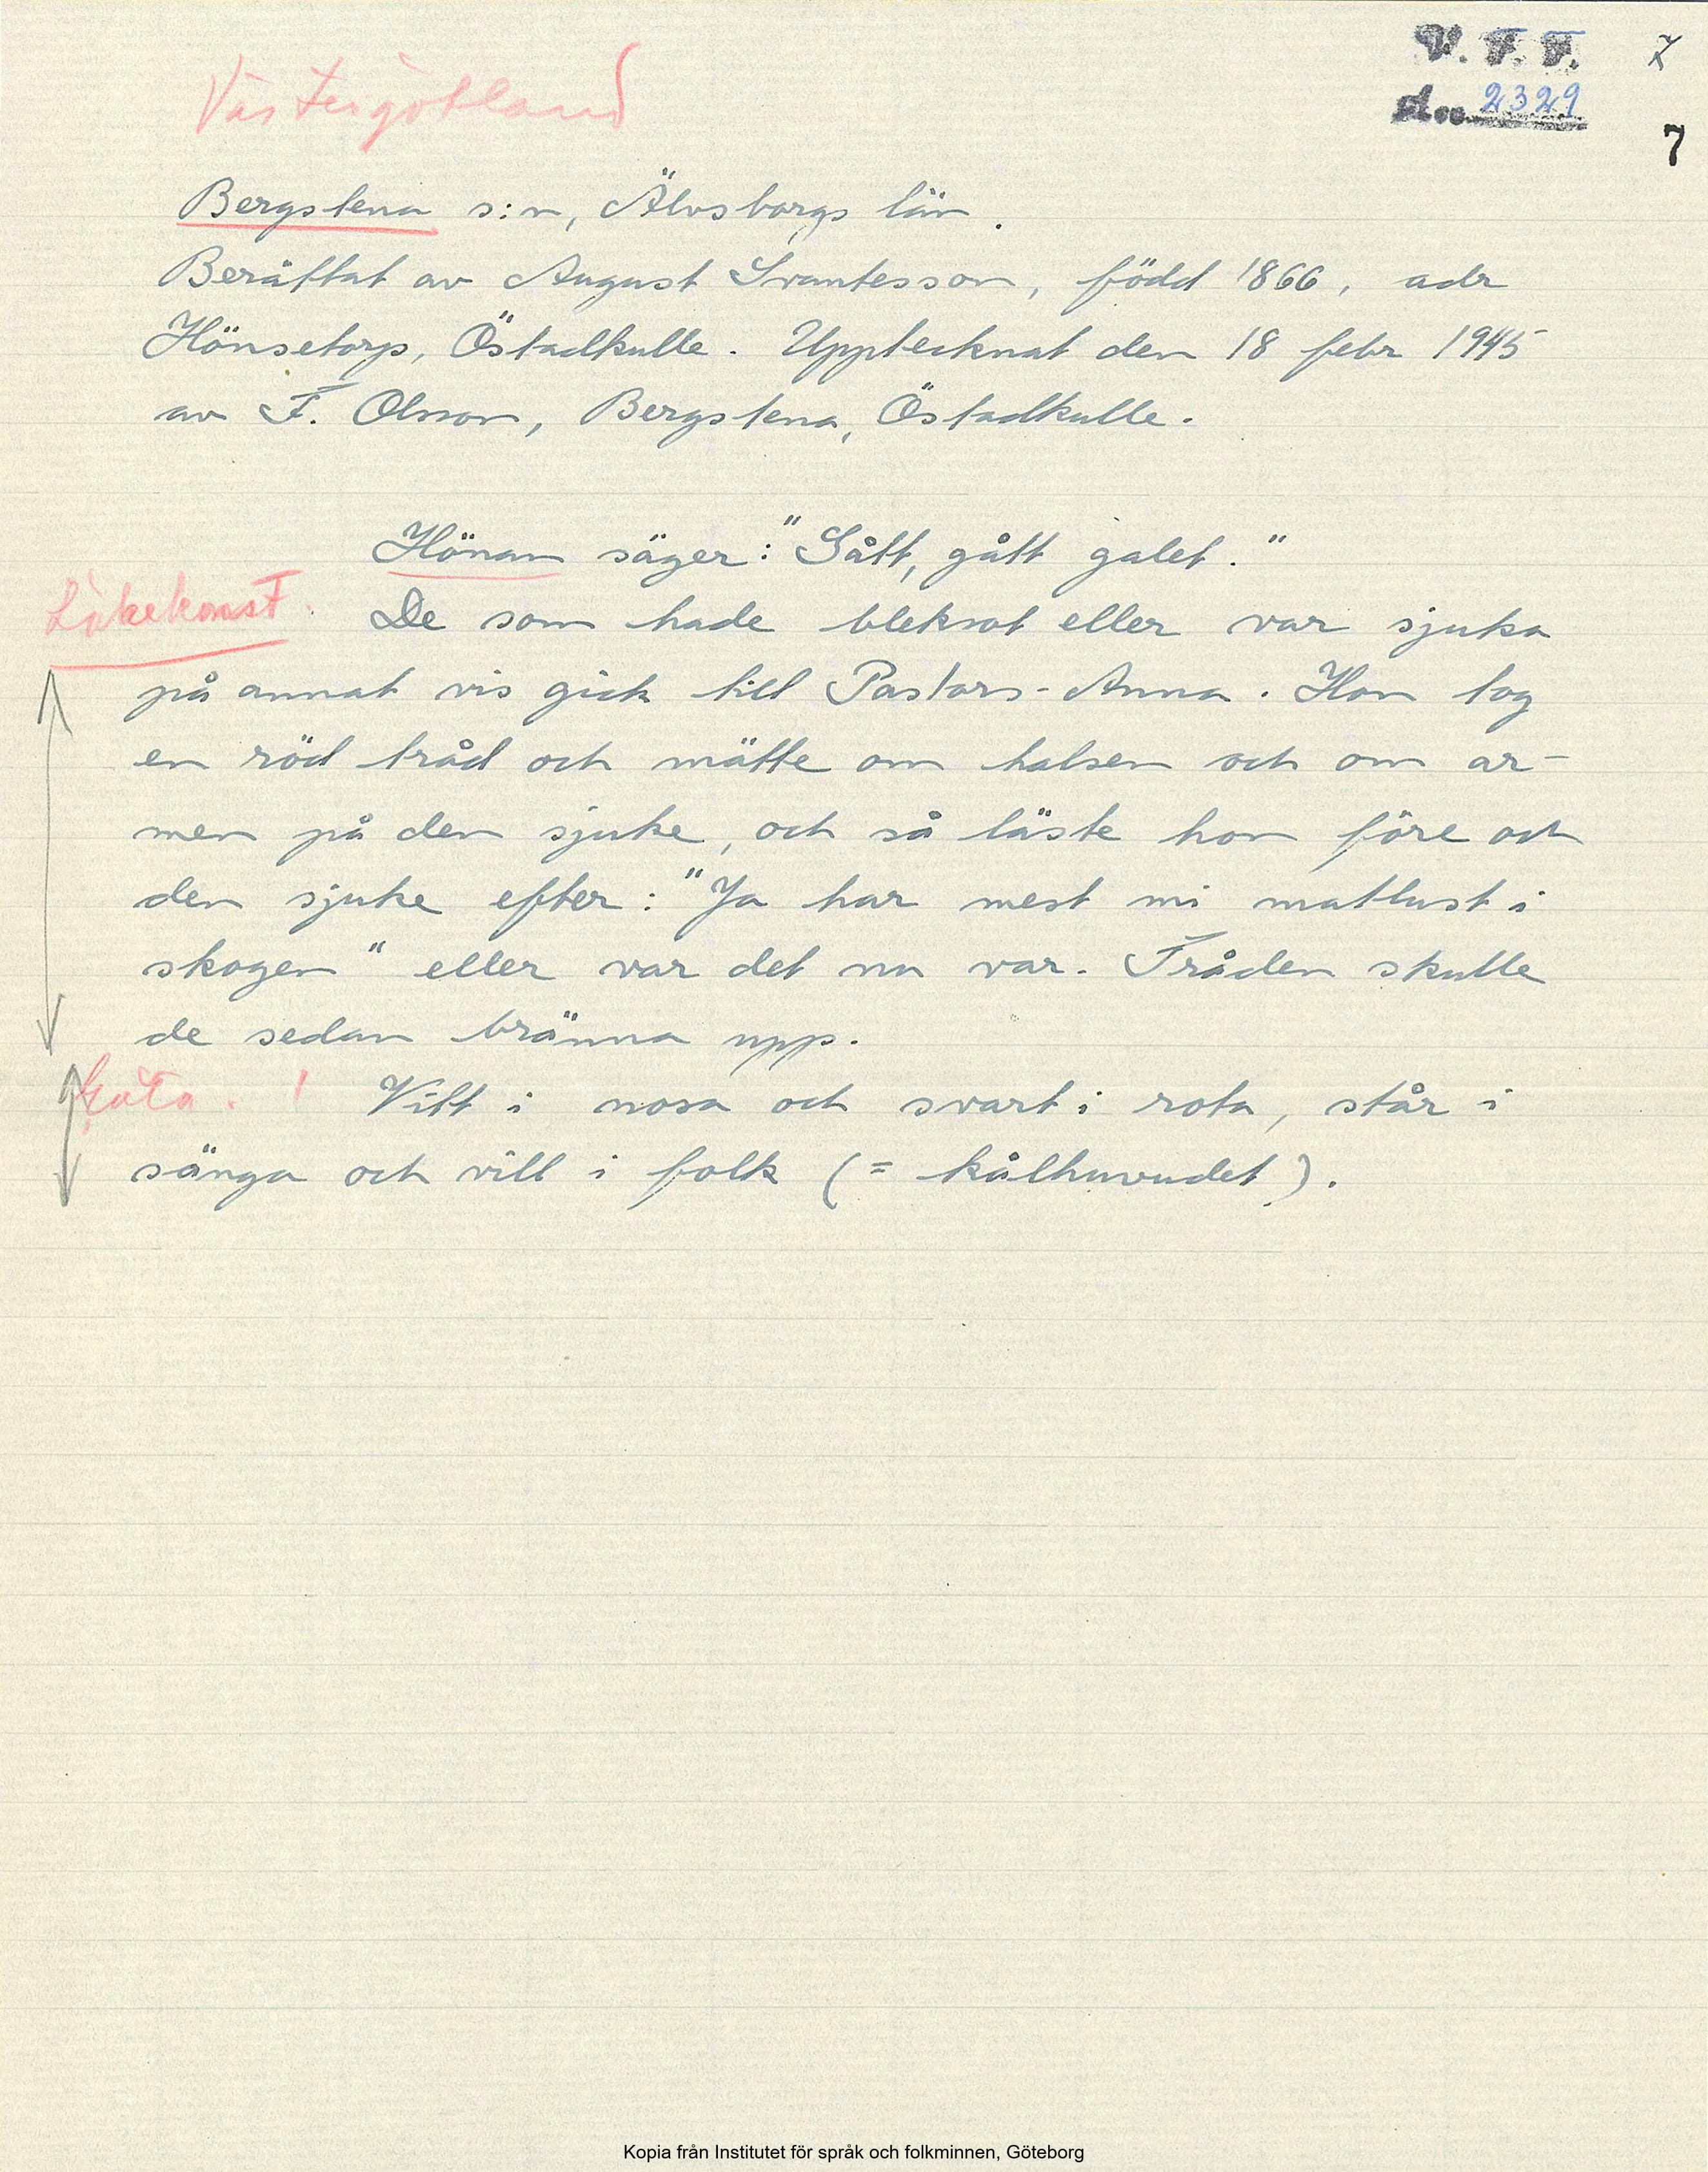 Västergötland
V. F. F. 7
d.no. 2329
7
Bergstena s:n, Älvsborgs län.
Berättat av August Svantesson, född 1866, adr
Hönsetorp, Östadkulle. Upptecknat den 18 febr 1945
av F. Olsson, Bergstena, Östadkulle.
Hönan säger: "Gått, gått galet."
Läkekonst.
De som hade bleksot eller var sjuka
på annat vis gick till Pastors-Anna. Hon tog
en röd tråd och mätte om halsen och om ar-
men på den sjuke, och så läste hon före och
den sjuke efter: "Ja har mest mi matlust i
skogen" eller var det nu var. Tråden skulle
de sedan bränna upp.
Gåta. ! Vitt i nosa och svart i rota, står i
sänga och vill i folk (= kålhuvudet).
Kopia från Institutet för språk och folkminnen, Göteborg